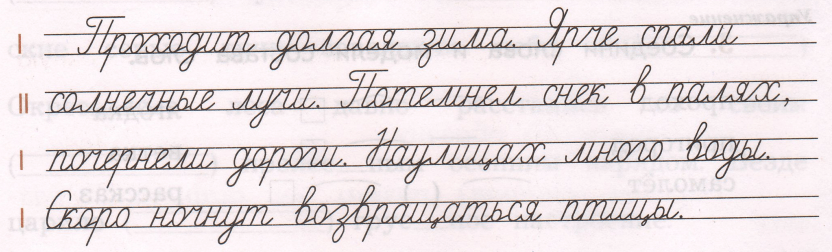 Проходит долгая зима. Ярче спали
солнечные лучи. Потемнел снек в палях,
почернели дороги. Наулицах много воды.
Скоро ночнут возвращаться птицы.